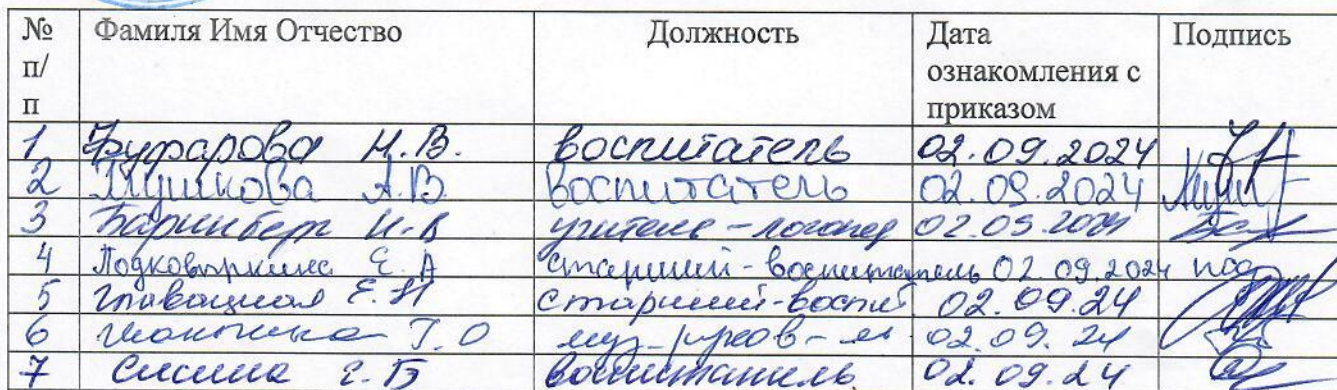 № п/п Фамиля Имя Отчество Должность Дата ознакомления с приказом Подпись
1 Н.В. воспитатель 02.09.2024
2 Мушкова А.В. воспитатель 02.09.2024
3 Баринберг И.В учитель-логопед 02.09.2024
4 Подковыркина Е.А старший-воспитатель 02.09.2024 под
5 Главацкая Е.Н старший-воспит 02.09.24
6 Т.О муз-руков-ль 02.09.24
7 воспитатель 02.09.24